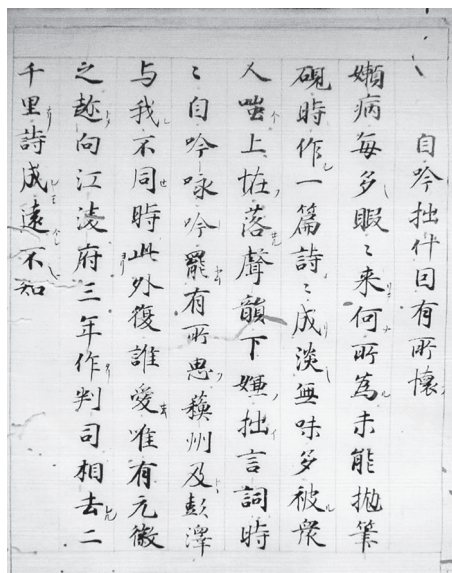 自吟拙什因有所懐
嬾病毎多暇〻来何所為未能拋筆
硯時作一篇詩〻成淡無味多被衆
人嗤上恠落聲韻下嫌拙言詞時
〻自吟咏吟罷有所思蘓州及彭澤
与我不同時此外復誰愛唯有元微
之趂向江陵府三年作判司相去二
千里詩成遠不知